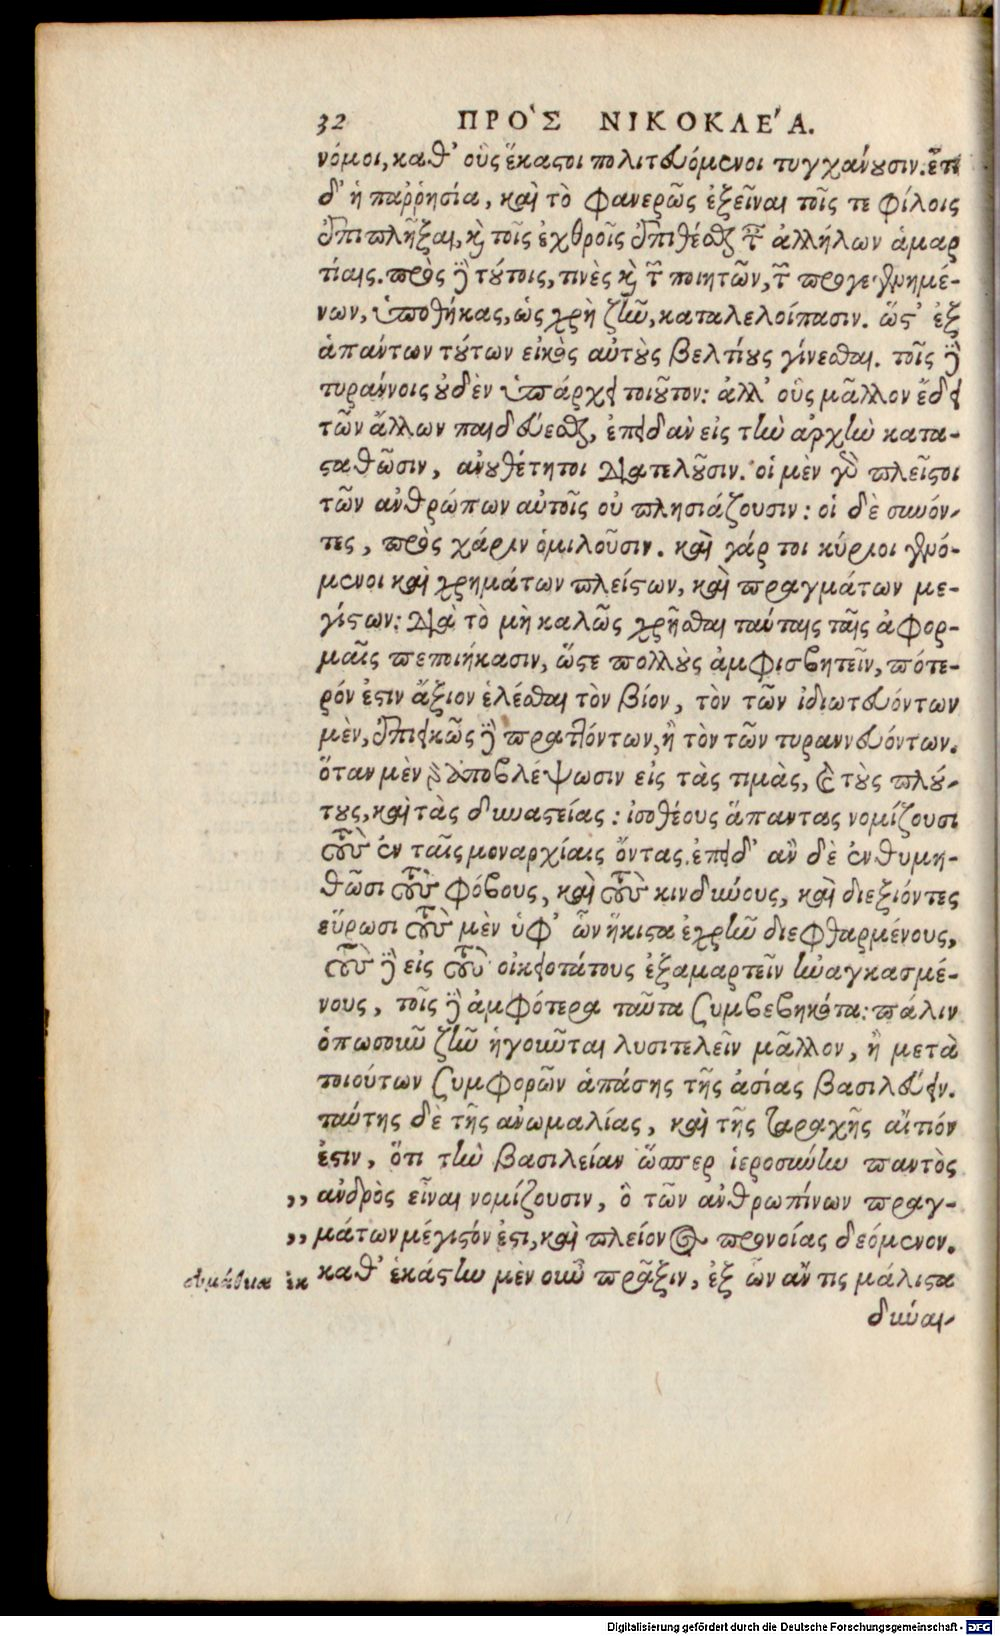 32 ΠΡΟ`Σ ΝΙΚΟΚΛΕ´Α.
νόμοι, καθ' οὓς ἕκαστοι πολιτευόμενοι τυγχάνουσιν. ἔτι
δ' ἡ παῤῥησία, καὶ τὸ φανερῶς ἐξεῖναι τοῖς τε φίλοις
ἐπιπλῆξαι, καὶ τοῖς ἐχθροῖς ἐπιθέσθαι ταῖς ἀλλήλων ἁμαρ
τίαις. πρὸς δὲ τούτοις, τινὲς καὶ τῶν ποιητῶν, τῶν προγεγενημέ-
νων, ὑποθήκας, ὡς χρὴ ζῆν, καταλελοίπασιν. ὥστ' ἐξ
ἁπάντων τούτων εἰκὸς αὐτοὺς βελτίους γίνεσθαι. τοῖς δὲ
τυράννοις οὐδὲν ὑπάρχει τοιοῦτον: ἀλλ' οὓς μᾶλλον ἔδει
τῶν ἄλλων παιδεύεσθαι, ἐπειδὰν εἰς τὴν ἀρχὴν κατα-
σταθῶσιν, ἀνουθέτητοι διατελοῦσιν. οἱ μὲν γὰρ πλεῖστοι
τῶν ἀνθρώπων αὐτοῖς οὐ πλησιάζουσιν: οἱ δὲ συνόν-
τες, πρὸς χάριν ὁμιλοῦσιν. καὶ γάρ τοι κύριοι γενό-
μενοι καὶ χρημάτων πλείστων, καὶ πραγμάτων με-
γίστων: διὰ τὸ μὴ καλῶς χρῆσθαι ταύταις ταῖς ἀφορ-
μαῖς πεποιήκασιν, ὥστε πολλοὺς ἀμφισβητεῖν, πότε-
ρόν ἐστιν ἄξιον ἑλέσθαι τὸν βίον, τὸν τῶν ἰδιωτευόντων
μὲν, ἐπιεικῶς δὲ πραττόντων, ἢ τὸν τῶν τυραννευόντων.
ὅταν μὲν γὰρ ἀποβλέψωσιν εἰς τὰς τιμὰς, καὶ τοὺς πλού-
τους, καὶ τὰς δυναστείας: ἰσοθέους ἅπαντας νομίζουσι
τοὺς ἐν ταῖς μοναρχίαις ὄντας. ἐπειδ' ἂν δὲ ἐνθυμη-
θῶσι τοὺς φόβους, καὶ τοὺς κινδύνους, καὶ διεξιόντες
εὕρωσι τοὺς μὲν ὑφ' ὧν ἥκιστα ἐχρῆν διεφθαρμένους,
τοὺς δὲ εἰς τοὺς οἰκειοτάτους ἐξαμαρτεῖν ἠναγκασμέ-
νους, τοῖς δὲ ἀμφότερα ταῦτα συμβεβηκότα: πάλιν
ὁπωσοῦν ζῆν ἡγοῦνται λυσιτελεῖν μᾶλλον, ἢ μετὰ
τοιούτων συμφορῶν ἁπάσης τῆς ἀσίας βασιλεύειν.
ταύτης δὲ τῆς ἀνωμαλίας, καὶ τῆς ταραχῆς αἴτιόν
ἐστιν, ὅτι τὴν βασιλείαν ὥσπερ ἱεροσύνην παντὸς
,, ἀνδρὸς εἶναι νομίζουσιν, ὃ τῶν ἀνθρωπίνων πραγ-
,, μάτων μέγιστόν ἐστι, καὶ πλείονος προνοίας δεόμενον.
καθ' ἑκάστην μὲν οὖν πρᾶξιν, ἐξ ὧν ἄν τις μάλιστα
δύναι-
Digitalisierung gefördert durch die Deutsche Forschungsgemeinschaft - DFG